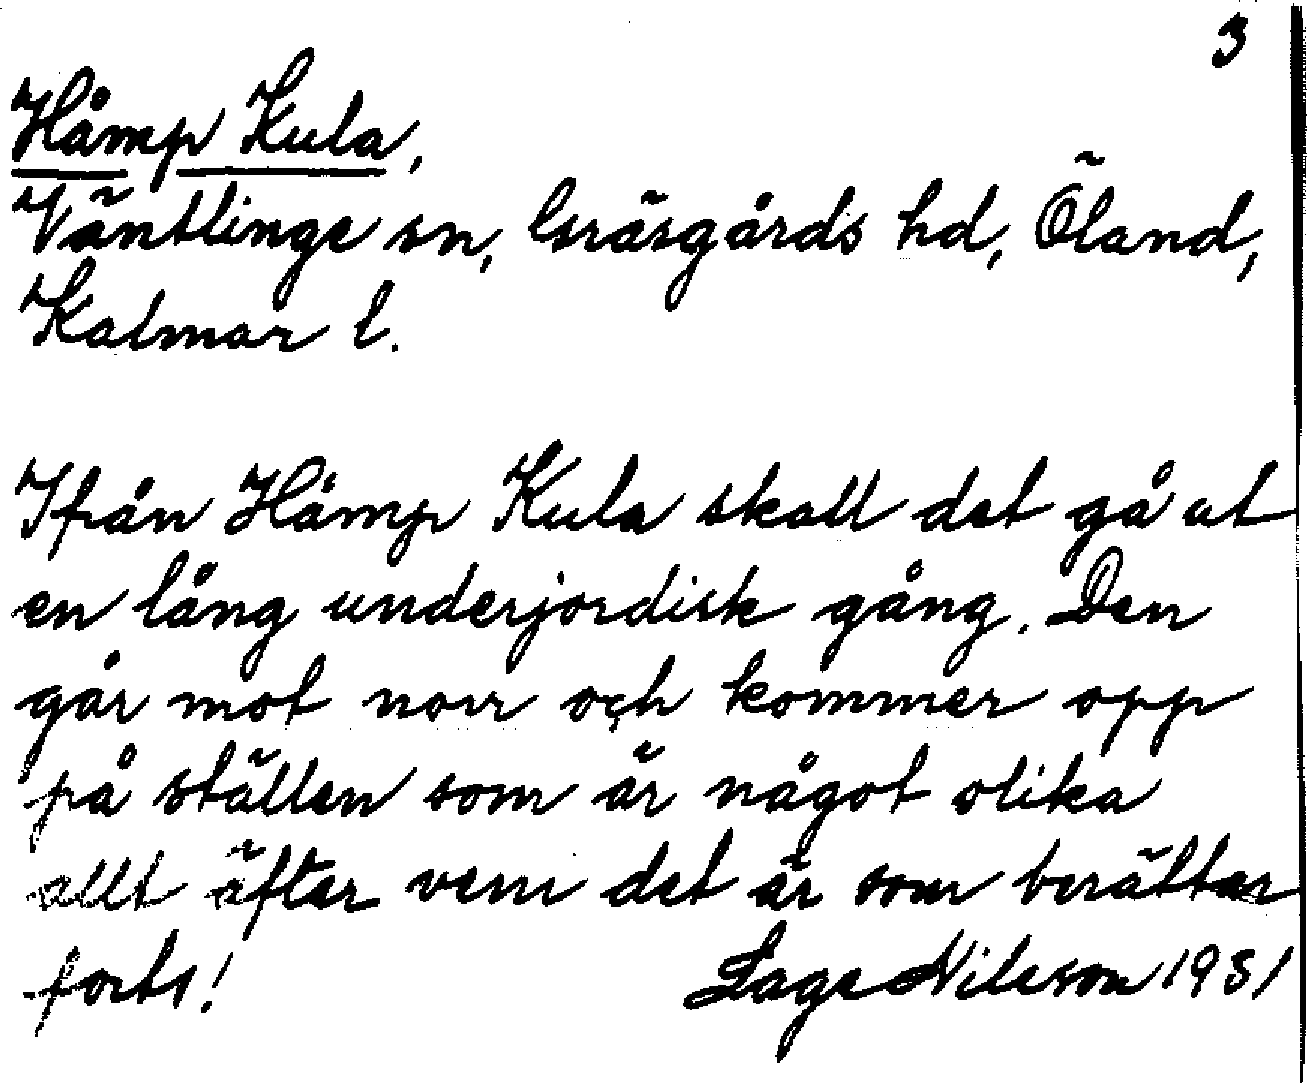 3
Håmp Kula,
Väntlinge sn, Gräsgårds hd, Öland,
Kalmar l.
Ifrån Håmp Kula skall det gå ut
en lång underjordisk gång. Den
går mot norr och kommer opp
på ställen som är något olika
allt äfter vem det är som berättar
forts! Lage Nilsson 1931